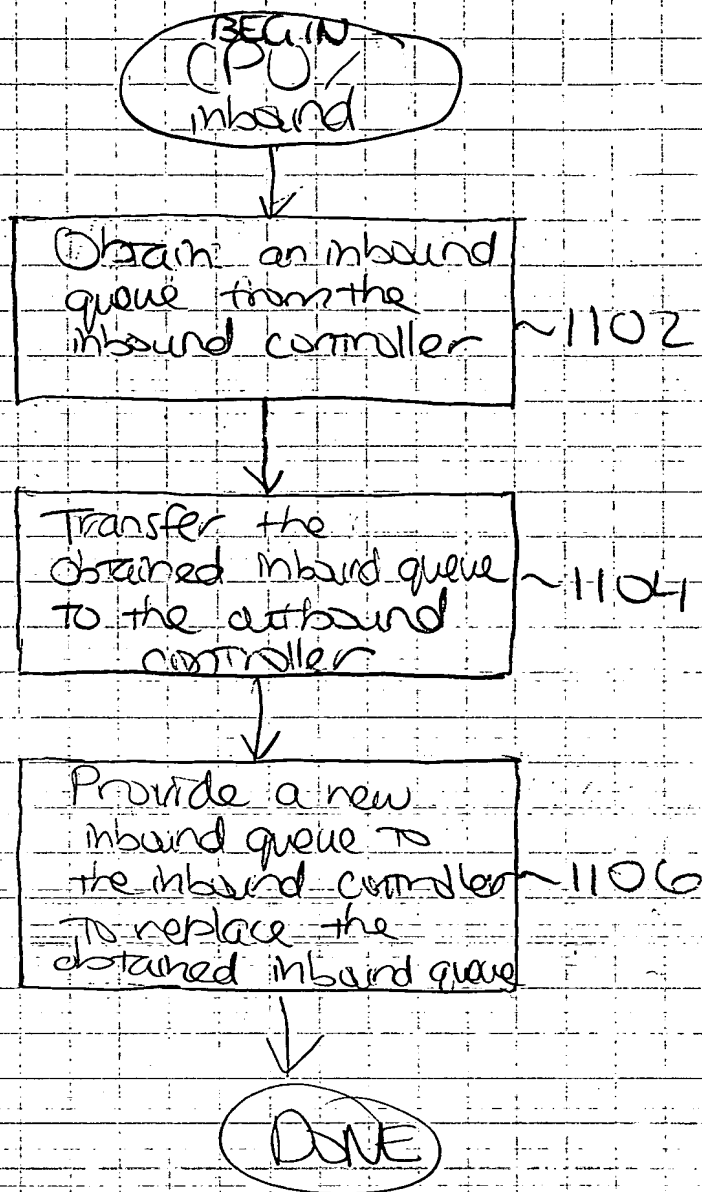 BEGIN
CPU/
inbound
Obtain an inbound
queue from the
inbound controller
~1102
Transfer the
obtained inbound queue
to the outbound
controller
~1104
Provide a new
inbound queue to
the inbound controller
to replace the
obtained inbound queue
~1106
DONE